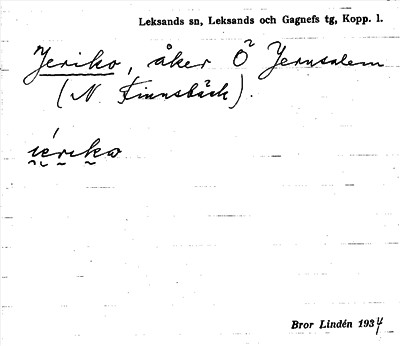 Leksands sn, Leksands och Gagnefs tg, Kopp. l.
Jeriko, åker Ö² Jerusalem
(N. Finnsbäck).
iériko
Bror Lindén 1934